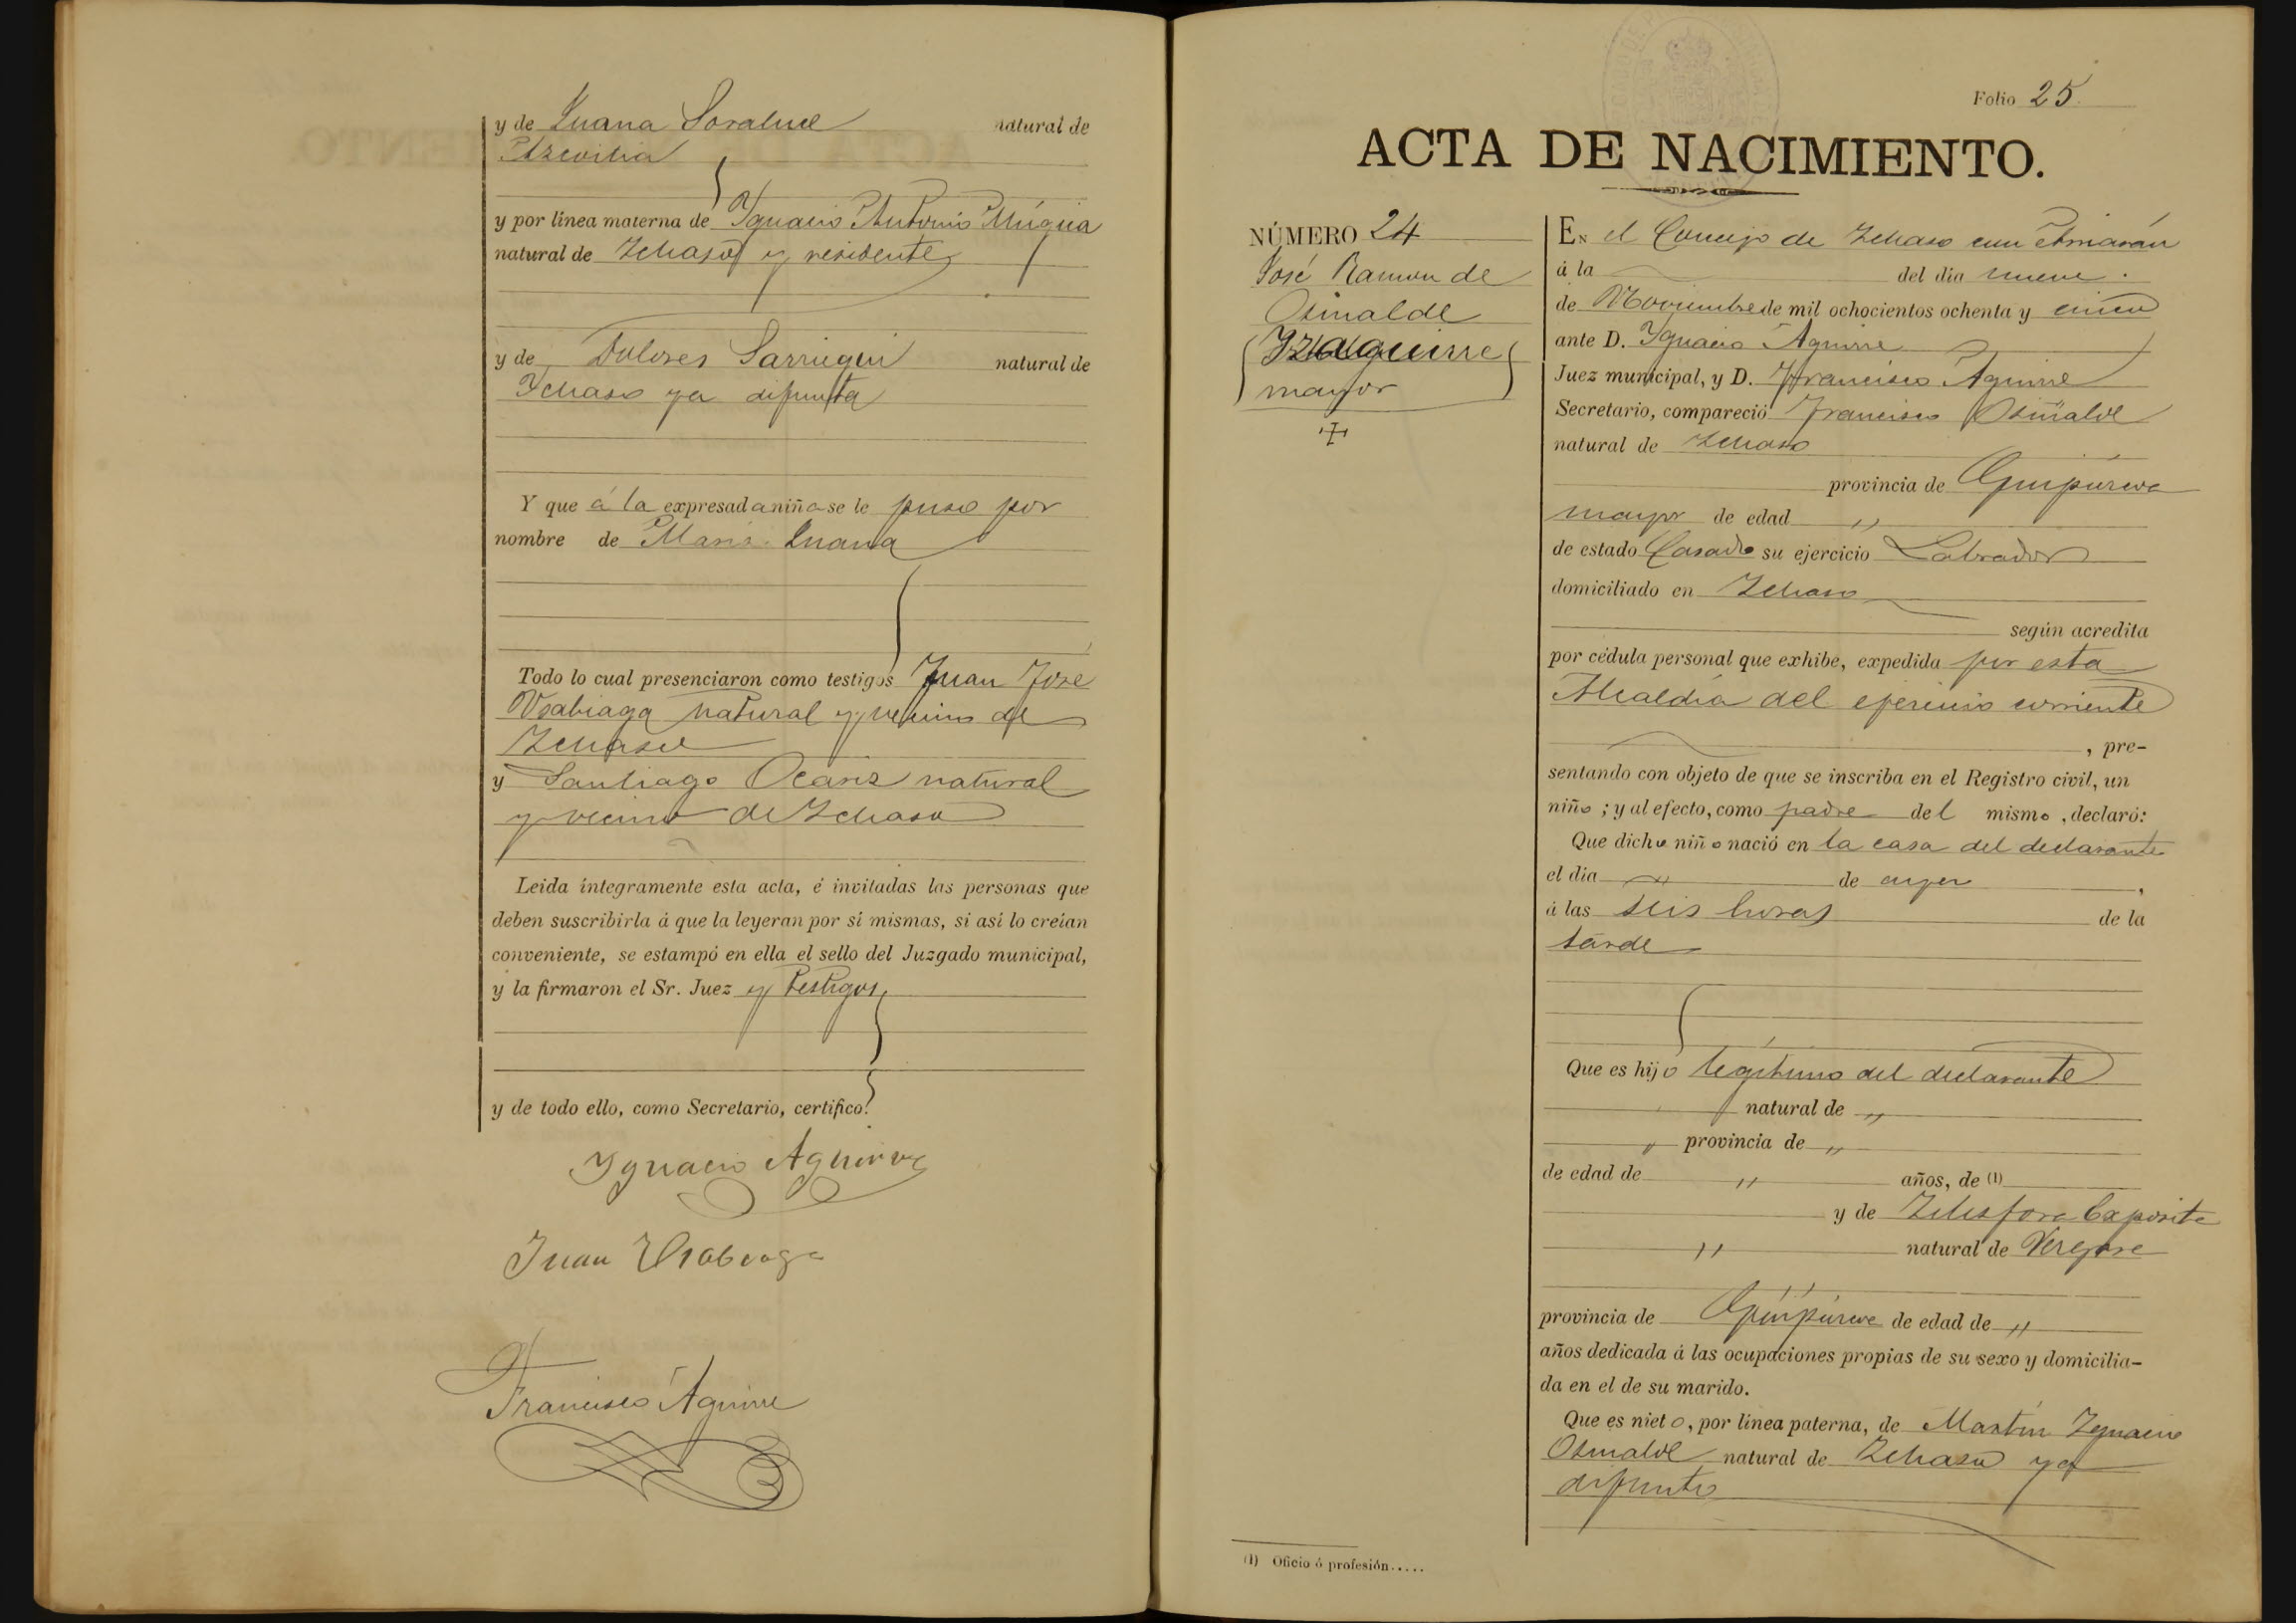 y de Juana Soraluce natural de
Azcoitia
y por línea materna de Ygnacio Antonio Múgica
natural de Ychaso y residente
y de Dolores Sarriegui natural de
Ychaso ya difunta
Y que á la expresada niña se le puso por
nombre de María Juana
Todo lo cual presenciaron como testigos Juan José
Usabiaga natural y vecino de
Ychaso
y Santiago Ocariz natural
y vecino de Ychaso
Leida íntegramente esta acta, é invitadas las personas que
deben suscribirla á que la leyeran por sí mismas, si así lo creían
conveniente, se estampó en ella el sello del Juzgado municipal,
y la firmaron el Sr. Juez y testigos
y de todo ello, como Secretario, certifico.
Ygnacio Aguirre
Juan Usabiaga
Francisco Aguirre
Folio 25
ACTA DE NACIMIENTO.
NÚMERO 24
José Ramon de
Osinalde
Yzaguirre
mayor
EN el Concejo de Ychaso con Arriarán
á la del dia nueve
de Noviembre de mil ochocientos ochenta y cinco
ante D. Ygnacio Aguirre
Juez municipal, y D. Francisco Aguirre
Secretario, compareció Francisco Osiñalde
natural de Ychaso
provincia de Guipúzcoa
mayor de edad "
de estado Casado su ejercicio Labrador
domiciliado en Ychaso
según acredita
por cédula personal que exhibe, expedida por esta
Alcaldía del ejercicio corriente
, pre-
sentando con objeto de que se inscriba en el Registro civil, un
niño; y al efecto, como padre del mismo, declaró:
Que dicho niño nació en la casa del declarante
el día " de ayer ,
á las seis horas de la
tarde
Que es hijo legítimo del declarante
natural de "
" provincia de "
de edad de " años, de (1)
y de Telesfora Exposita
" natural de Vergara
provincia de Guipúzcoa de edad de "
años dedicada á las ocupaciones propias de su sexo y domicilia-
da en el de su marido.
Que es nieto, por línea paterna, de Martín Ygnacio
Osinalde natural de Ychaso ya
difunto
(1) Oficio ó profesión.....